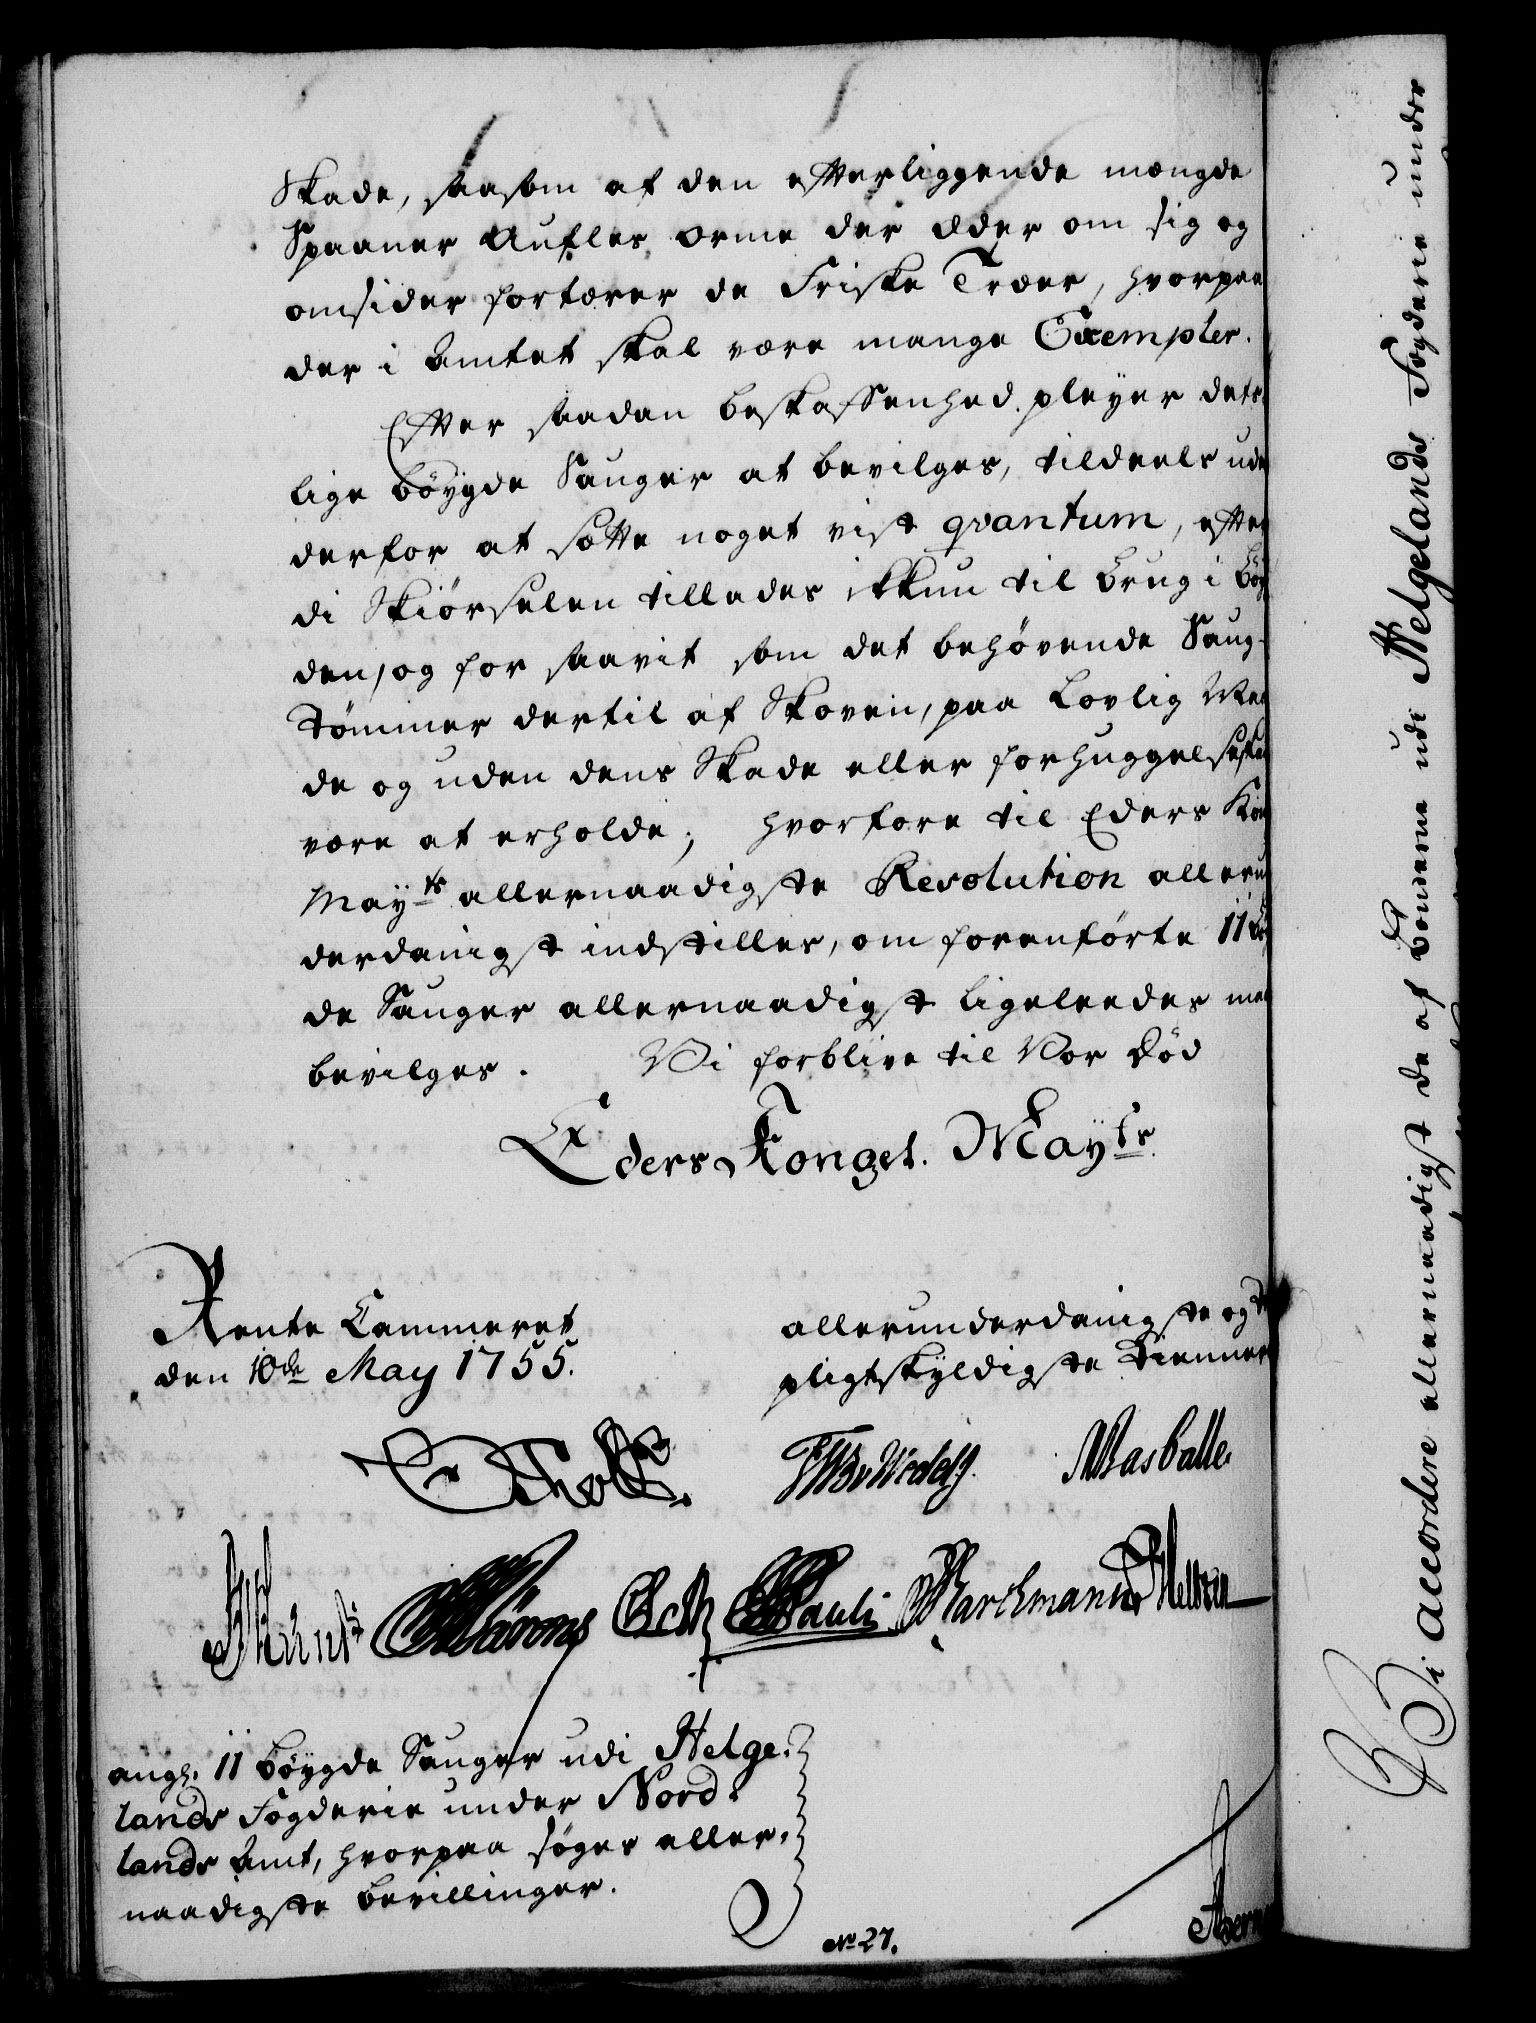 Skade, saasom af den efterliggende mængde
Spaaner Aufles Orme der Æder om sig og
omsider fortærer de Friske Træer, hvorpaa
der i Amtet skal være mange Exempler.
Efter saadan beskaffenhed pleyer dets
lige Böygde Sauger at bevilges, tildeels uden
derfor at sætte noget vist qvantum, efter
di Skiörselen tillades ikkun til Brug i Böy
den, og for saavit som det behövende Saug-
Tömmer dertil af Skoven, paa Lovlig Maa
de og uden dens Skade eller forhuggelse
være at erholde; hvorfore til Eders Kong
Mayts allernaadigste Resolution allerun
derdanigst indstilles, om forenförte 11 Böyg
de Sauger allernaadigst ligeleedes maa
bevilges. Vi forblive til Vor Död
Eders Kongel. Mayts
Rente Cammeret
den 10de May 1755.
allerunderdanigste og
pligtskyldigste Tiennere
Holst
Wedelf
Pauli
Barchmann
angl. 11 Böygde Sauger udi Helge-
lands Fogderie under Nord-
lands Amt, hvorpaa söges aller-
naadigste Bevillinger.
No 27.
Vi accordere allernaadigst de af Bönderne udi Helgelands Fogderie under